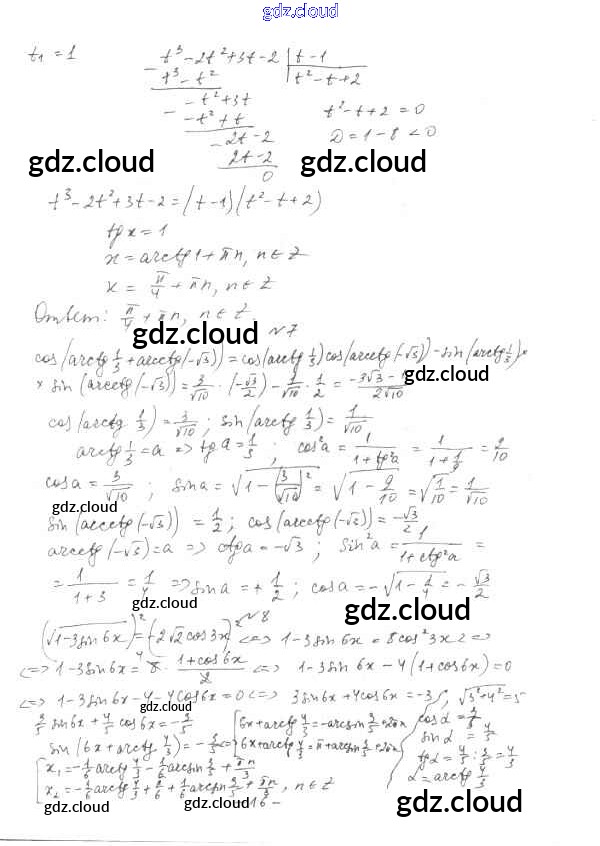 gdz.cloud
t₁ = 1
t³-2t²+3t-2 | t-1
t³-t² | t²-t+2
-t²+3t
-t²+t
t²-t+2=0
2t-2
D=1-8<0
2t-2
0
gdz.cloud gdz.cloud
t³-2t²+3t-2=(t-1)(t²-t+2)
tg x=1
x=arctg1+πn, n∈Z
x = π/4 + πn, n∈Z
Ответ: π/4 + πn, n∈Z.
gdz.cloud
№7
cos(arctg 1/3 + arcctg(-√3)) = cos(arctg 1/3) cos(arcctg(-√3)) - sin(arctg 1/3) ×
× sin(arcctg(-√3)) = 3/√10 · (-√3/2) - 1/√10 · 1/2 = (-3√3 - 1)/2√10
gdz.cloud
cos(arctg 1/3) = 3/√10 ; sin(arctg 1/3) = 1/√10
arctg 1/3 = a => tg a = 1/3 ; cos²a = 1/(1+tg²a) = 1/(1+1/9) = 9/10
cos a = 3/√10 ; sin a = √(1-|3/√10|²) = √(1-9/10) = √(1/10) = 1/√10
gdz.cloud
sin(arcctg(-√3)) = 1/2 ; cos(arcctg(-√3)) = -√3/2
arcctg(-√3) = a => ctg a = -√3 ; sin²a = 1/(1+ctg²a) =
= 1/(1+3) = 1/4 => sin a = + 1/2 ; cos a = -√(1-1/4) = -√3/2
gdz.cloud gdz.cloud
№8
(√(1-3sin6x))² = (-2√2 cos3x)² <=> 1-3sin6x = 8cos²3x <=>
<=> 1-3sin6x = 8 · (1+cos6x)/2 <=> 1-3sin6x-4(1+cos6x)=0
<=> 1-3sin6x-4-4cos6x=0 <=> 3sin6x+4cos6x=-3 ; √(3²+4²)=5
3/5 sin6x + 4/5 cos6x = -3/5
cos α = 3/5
sin α = 4/5
tg α = 4/5 : 3/5 = 4/3
α = arctg 4/3
sin(6x+arctg 4/3) = -3/5 <=>
6x+arctg 4/3 = -arcsin 3/5 + 2πn
6x+arctg 4/3 = π+arcsin 3/5 + 2πn
x₁ = -1/6 arctg 4/3 - 1/6 arcsin 3/5 + πn/3
x₂ = -1/6 arctg 4/3 + π/6 + 1/6 arcsin 3/5 + πn/3, n∈Z
gdz.cloud
16 -
gdz.cloud
gdz.cloud